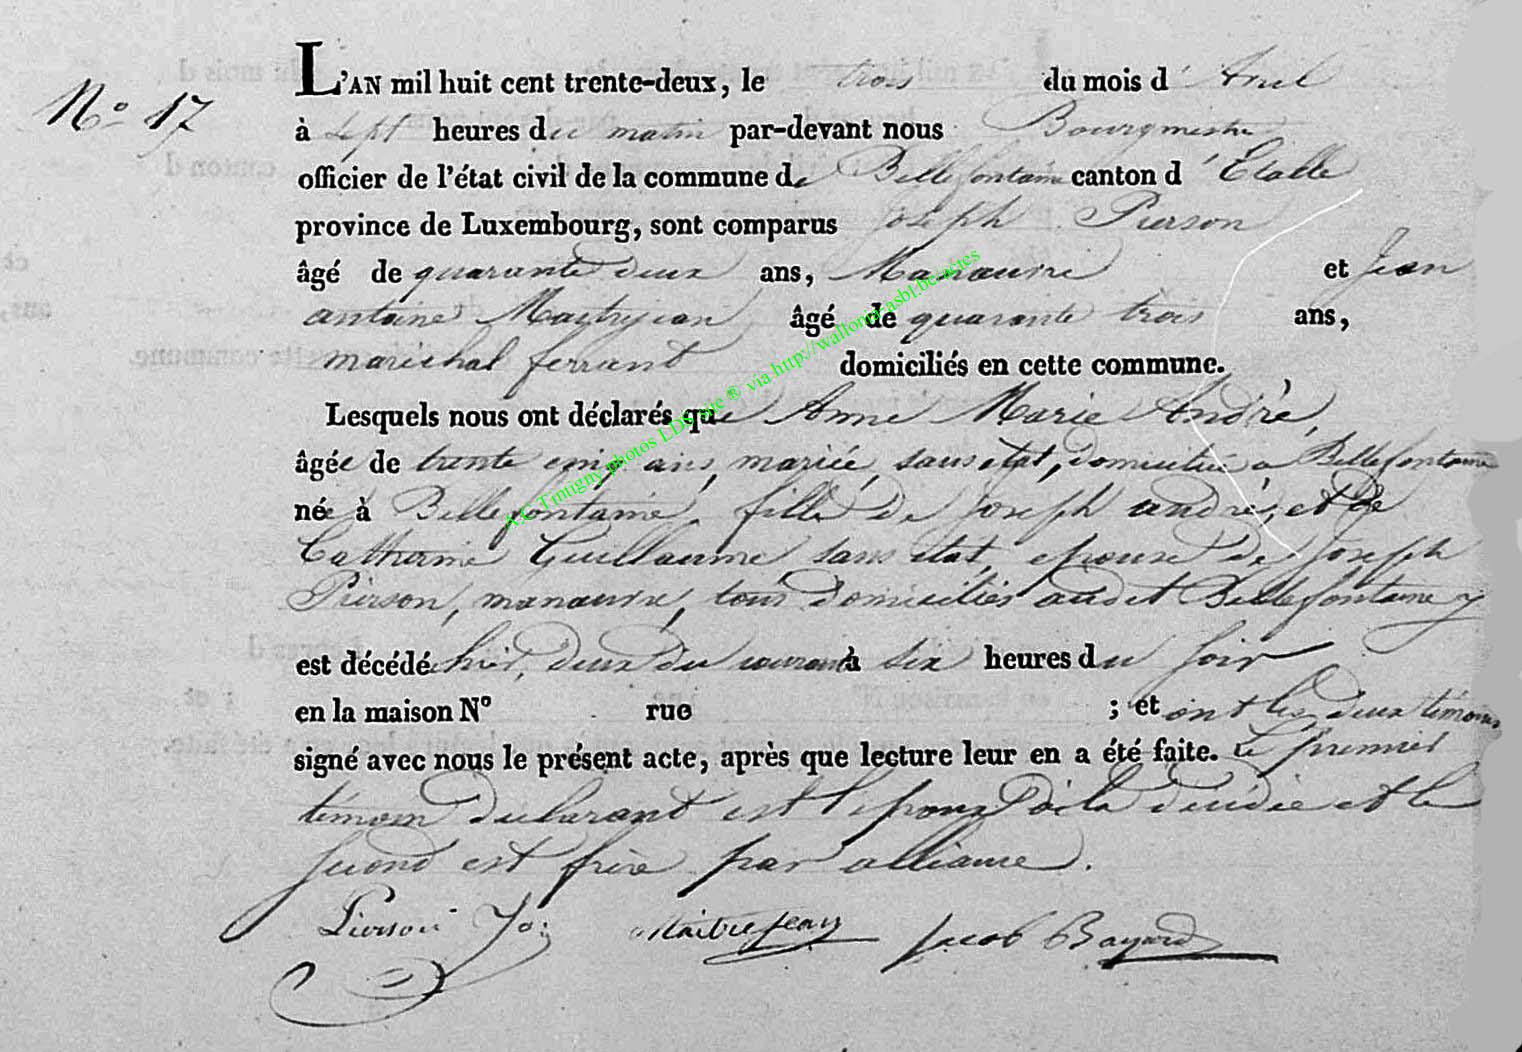 N° 17
L'AN mil huit cent trente-deux, le trois du mois d'Avril
à Sept heures du matin par-devant nous Bourgmestre
officier de l'état civil de la commune de Bellefontaine canton d'Etalle
province de Luxembourg, sont comparus Joseph Pierson
âgé de quarante deux ans, Manœuvre et Jean
antoine Maitrejean âgé de quarante trois ans,
maréchal ferrant domiciliés en cette commune.
Lesquels nous ont déclarés que Anne Marie André,
âgée de trente cinq ans, mariée, sans état, domiciliée a Bellefontaine
née à Bellefontaine, fille de Joseph andré, et de
Catherine Guillaume, sans état, epouse de Joseph
Pierson, manœuvre, tous domiciliés audit Bellefontaine y
est décédée hier, deux du courant à six heures du soir
en la maison N° rue ; et ont les deux témoins
signé avec nous le présent acte, après que lecture leur en a été faite. Le premier
témoin déclarant est l'epoux de la décédée et le
second est frère par alliance.
Pierson Jo: Maitrejean Jacob Bayard
A.C Tintigny photos LDS site ® via http://wallonia-asbl.be/actes